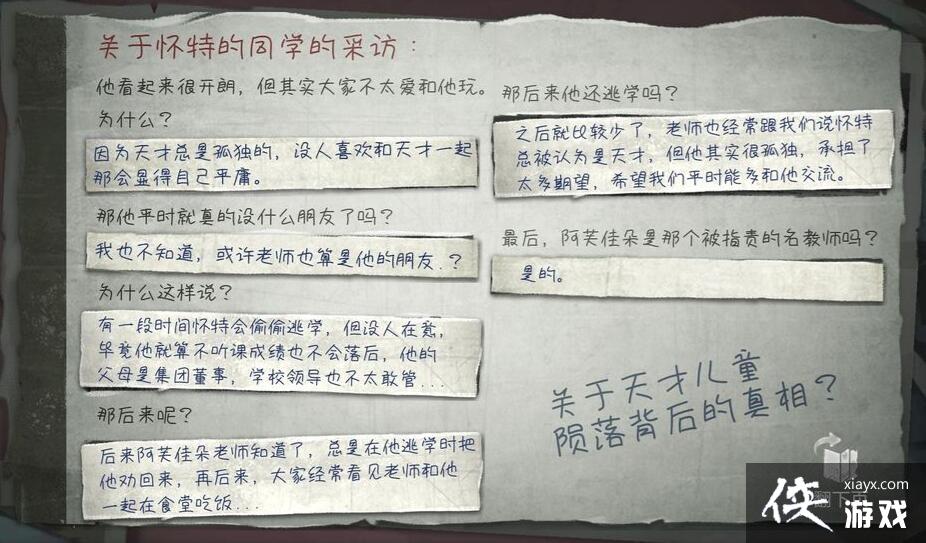 关于怀特的同学的采访：
他看起来很开朗，但其实大家不太爱和他玩。
为什么？
因为天才总是孤独的，没人喜欢和天才一起
那会显得自己平庸。
那他平时就真的没什么朋友了吗？
我也不知道，或许老师也算是他的朋友.？
为什么这样说？
有一段时间怀特会偷偷逃学，但没人在意，
毕竟他就算不听课成绩也不会落后，他的
父母是集团董事，学校领导也不太敢管...
那后来呢？
后来阿芙佳朵老师知道了，总是在他逃学时把
他劝回来，再后来，大家经常看见老师和他
一起在食堂吃饭...
那后来他还逃学吗？
之后就比较少了，老师也经常跟我们说怀特
总被认为是天才，但他其实很孤独，承担了
太多期望，希望我们平时能多和他交流。
最后，阿芙佳朵是那个被指责的名教师吗？
是的。
关于天才儿童
陨落背后的真相？
翻下页
侠 xiayx.com
游戏